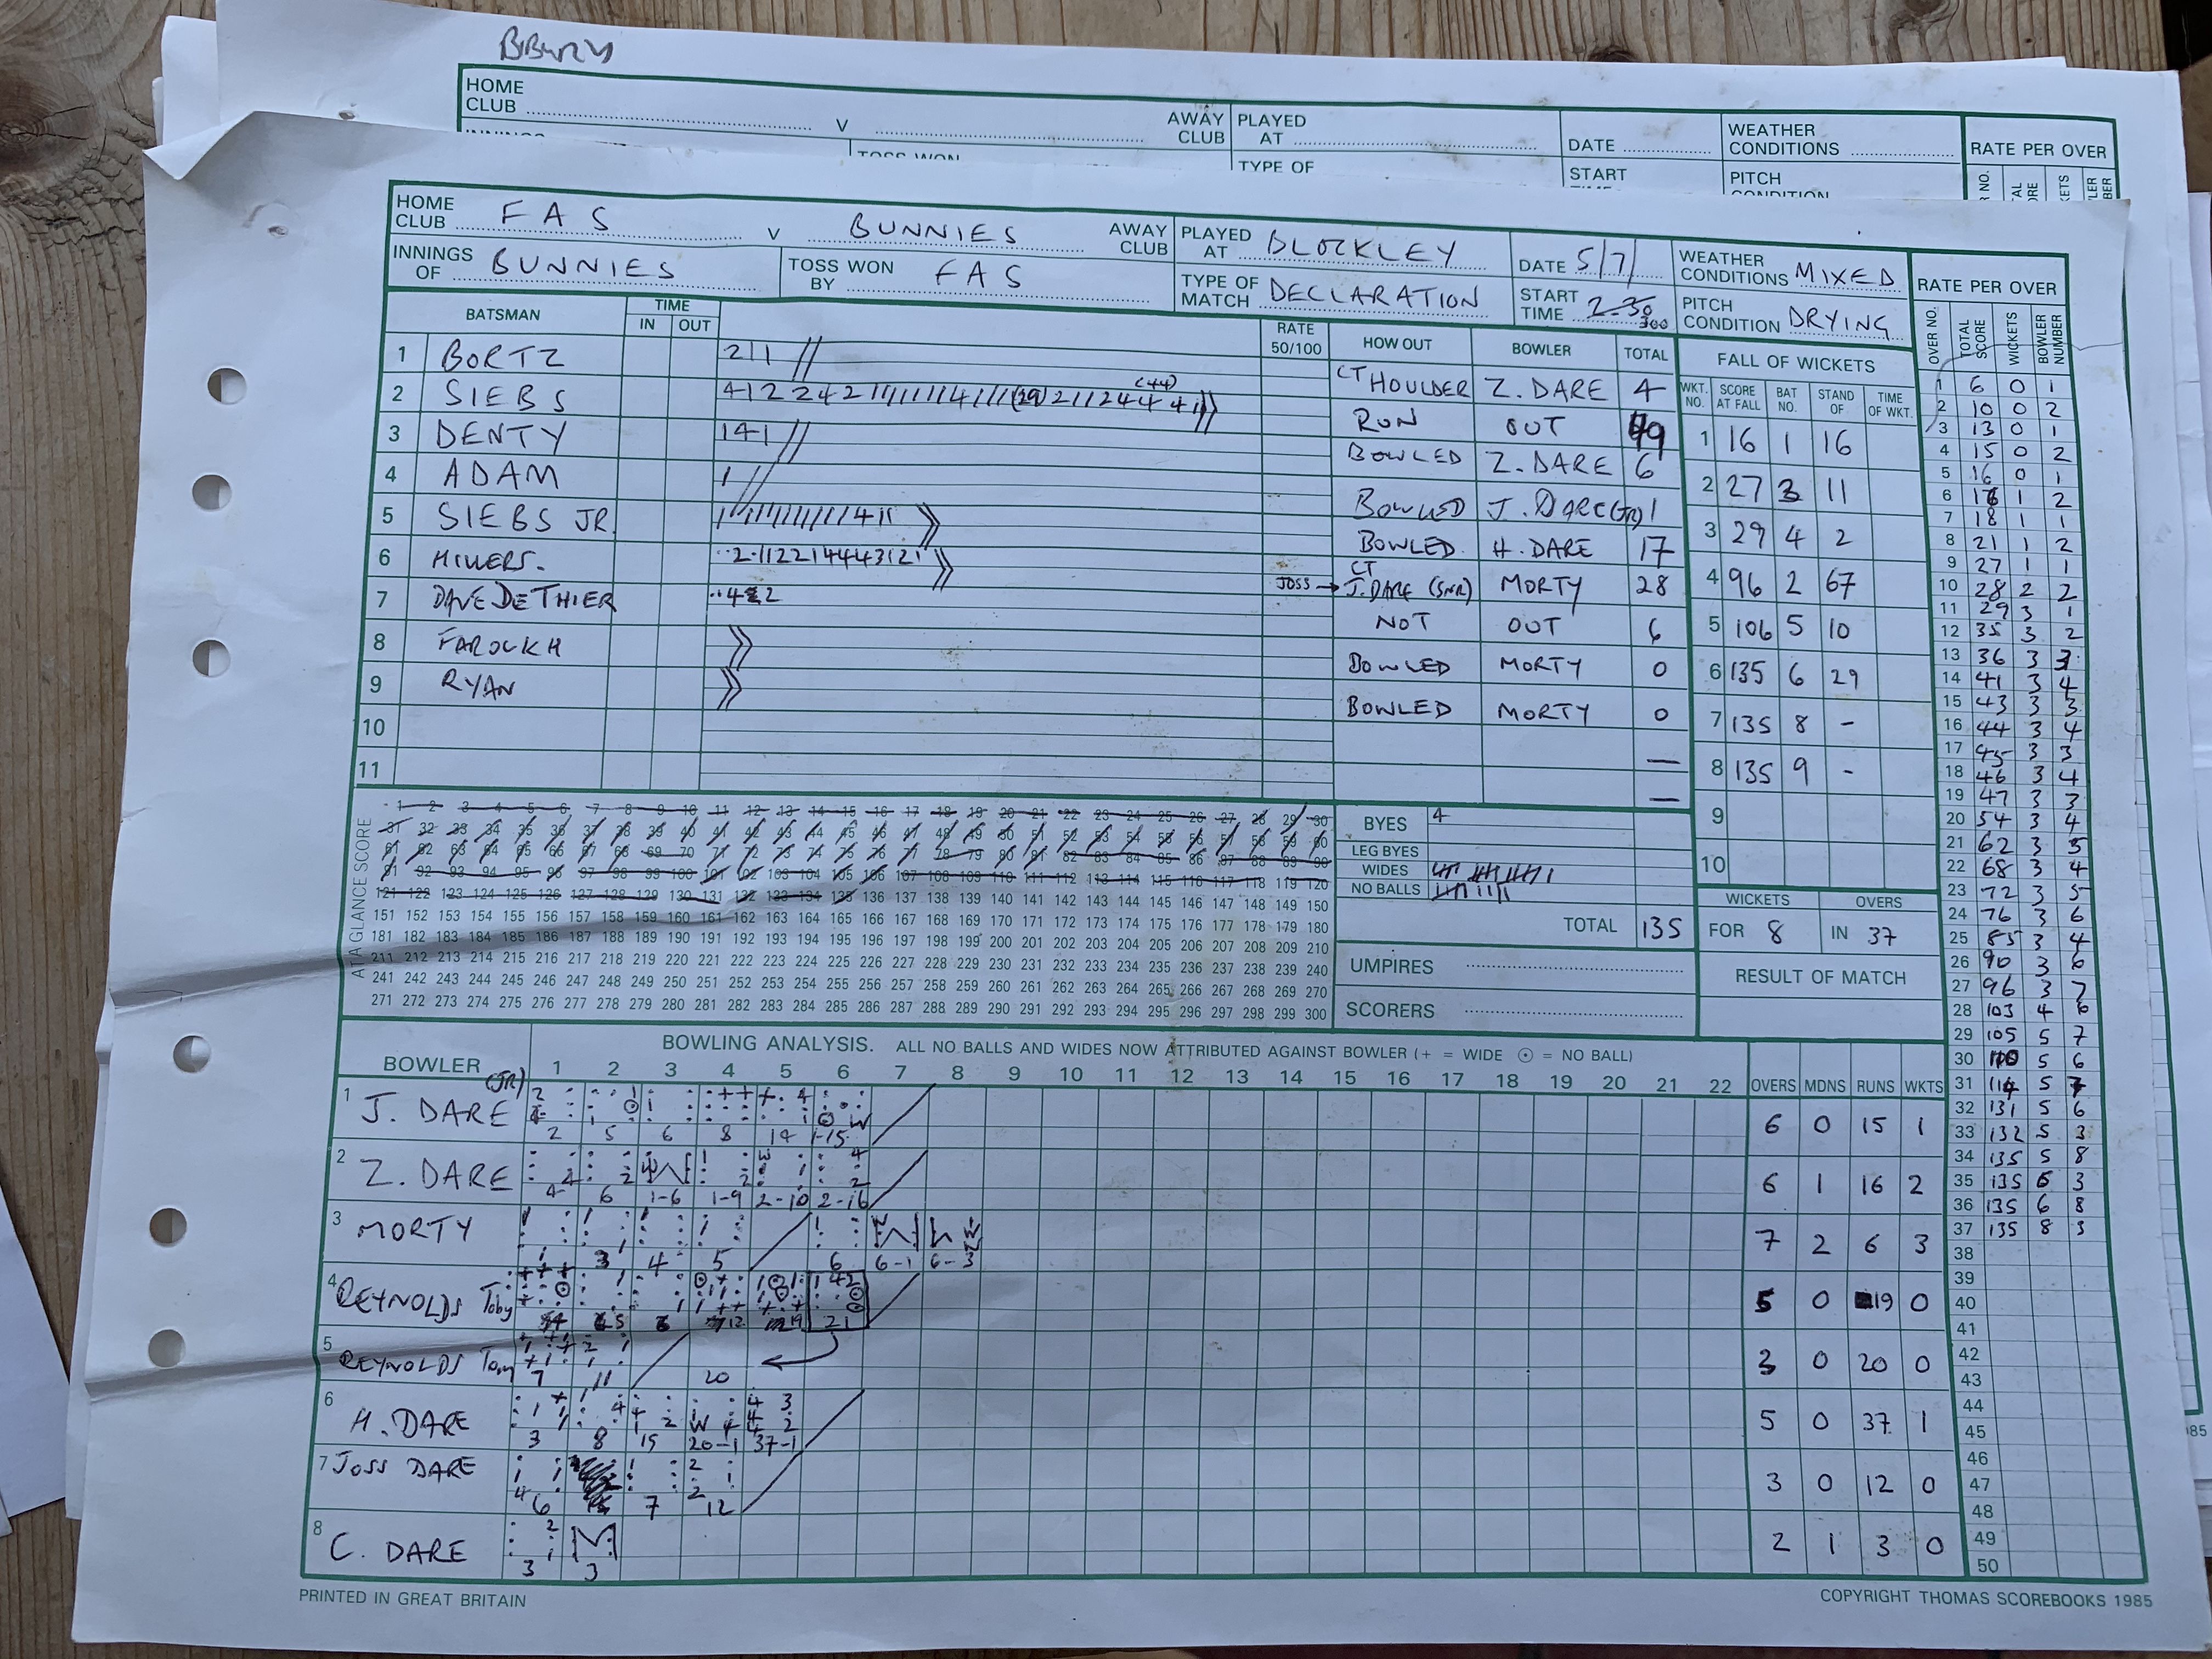 BIBURY
HOME CLUB V AWAY CLUB PLAYED AT DATE WEATHER CONDITIONS RATE PER OVER
TYPE OF START PITCH
HOME CLUB FAS V BUNNIES AWAY CLUB PLAYED AT BLOCKLEY DATE 5/7/ WEATHER CONDITIONS MIXED
INNINGS OF BUNNIES TOSS WON BY FAS TYPE OF MATCH DECLARATION START TIME 2-30 300 PITCH CONDITION DRYING
RATE PER OVER
BATSMAN TIME IN OUT RATE 50/100 HOW OUT BOWLER TOTAL
1 BORTZ 211 // CT HOULDER Z. DARE 4
2 SIEBS RUN OUT 49
3 DENTY 141 // BOWLED Z. DARE 6
4 ADAM 1 // BOWLED J. DARE (JR) 1
5 SIEBS JR. BOWLED H. DARE 17
6 HILLERS. ··2·112214443121 JOSS → CT J. DARE (SNR) MORTY 28
7 DAVE DETHIER NOT OUT 6
8 FAROUKH BOWLED MORTY 0
9 RYAN BOWLED MORTY 0
10 —
11 —
FALL OF WICKETS
WKT. NO. SCORE AT FALL BAT NO. STAND OF TIME OF WKT.
1 16 1 16
2 27 3 11
3 29 4 2
4 96 2 67
5 106 5 10
6 135 6 29
7 135 8 -
8 135 9 -
9
10
WICKETS OVERS
FOR 8 IN 37
RESULT OF MATCH
AT A GLANCE SCORE
1 2 3 4 5 6 7 8 9 10 11 12 13 14 15 16 17 18 19 20 21 22 23 24 25 26 27 28 29 30
31 32 33 34 35 36 37 38 39 40 41 42 43 44 45 46 47 48 49 50 51 52 53 54 55 56 57 58 59 60
61 62 63 64 65 66 67 68 69 70 71 72 73 74 75 76 77 78 79 80 81 82 83 84 85 86 87 88 89 90
91 92 93 94 95 96 97 98 99 100 101 102 103 104 105 106 107 108 109 110 111 112 113 114 115 116 117 118 119 120
121 122 123 124 125 126 127 128 129 130 131 132 133 134 135 136 137 138 139 140 141 142 143 144 145 146 147 148 149 150
151 152 153 154 155 156 157 158 159 160 161 162 163 164 165 166 167 168 169 170 171 172 173 174 175 176 177 178 179 180
181 182 183 184 185 186 187 188 189 190 191 192 193 194 195 196 197 198 199 200 201 202 203 204 205 206 207 208 209 210
211 212 213 214 215 216 217 218 219 220 221 222 223 224 225 226 227 228 229 230 231 232 233 234 235 236 237 238 239 240
241 242 243 244 245 246 247 248 249 250 251 252 253 254 255 256 257 258 259 260 261 262 263 264 265 266 267 268 269 270
271 272 273 274 275 276 277 278 279 280 281 282 283 284 285 286 287 288 289 290 291 292 293 294 295 296 297 298 299 300
BYES 4
LEG BYES
WIDES
NO BALLS
TOTAL 135
UMPIRES
SCORERS
OVER NO. TOTAL SCORE WICKETS BOWLER NUMBER
1 6 0 1
2 10 0 2
3 13 0 1
4 15 0 2
5 16 0 1
6 16 1 2
7 18 1 1
8 21 1 2
9 27 1 1
10 28 2 2
11 29 3 1
12 35 3 2
13 36 3 3
14 41 3 4
15 43 3 3
16 44 3 4
17 45 3 3
18 46 3 4
19 47 3 3
20 54 3 4
21 62 3 5
22 68 3 4
23 72 3 5
24 76 3 6
25 85 3 4
26 90 3 6
27 96 3 7
28 103 4 6
29 105 5 7
30 110 5 6
31 114 5 7
32 131 5 6
33 132 5 3
34 135 5 8
35 135 6 3
36 135 6 8
37 135 8 3
38
39
40
41
42
43
44
45
46
47
48
49
50
BOWLING ANALYSIS. ALL NO BALLS AND WIDES NOW ATTRIBUTED AGAINST BOWLER (+ = WIDE ⊙ = NO BALL)
BOWLER 1 2 3 4 5 6 7 8 9 10 11 12 13 14 15 16 17 18 19 20 21 22 OVERS MDNS RUNS WKTS
1 J. DARE (JR) 2 5 6 8 14 1-15 6 0 15 1
2 Z. DARE 4 6 1-6 1-9 2-10 2-16 6 1 16 2
3 MORTY 1 3 4 5 6 6-1 6-3 7 2 6 3
4 REYNOLDS Toby 12 19 21 5 0 19 0
5 REYNOLDS Tom 7 11 20 3 0 20 0
6 H. DARE 3 8 15 20-1 37-1 5 0 37 1
7 JOSS DARE 6 7 12 3 0 12 0
8 C. DARE 3 3 2 1 3 0
PRINTED IN GREAT BRITAIN COPYRIGHT THOMAS SCOREBOOKS 1985